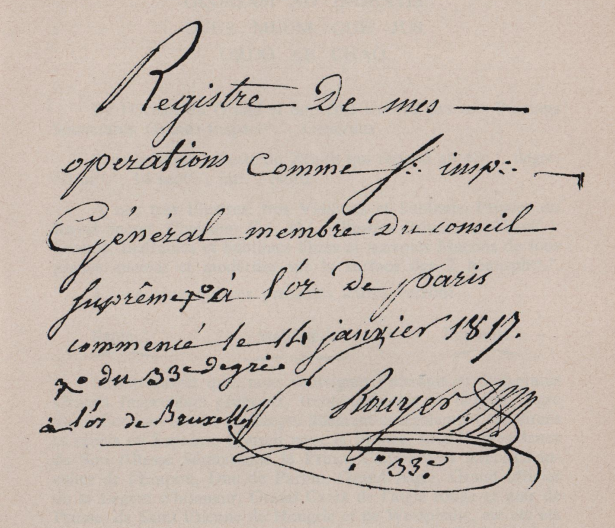 Registre De mes
operations Comme S.: imp.:
Général membre Du conseil
Suprême à l'or De paris
commencé le 14 janvier 1817.
du 33e degré
à l'or de Bruxelles
Rouyer
33e.